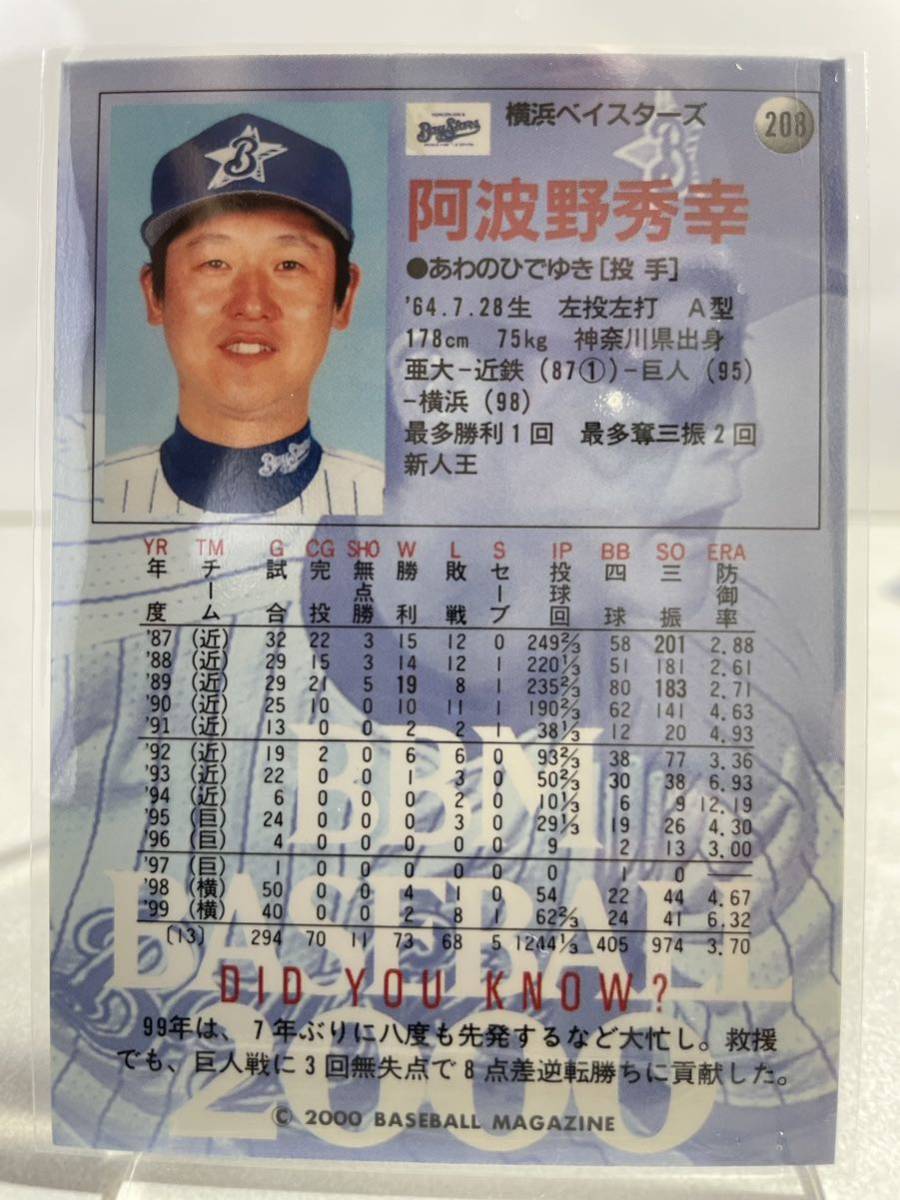 B
BayStars
横浜ベイスターズ
208
阿波野秀幸
●あわのひでゆき[投 手]
'64.7.28生 左投左打 A型
178cm 75kg 神奈川県出身
亜大-近鉄(87①)-巨人(95)
-横浜(98)
最多勝利1回 最多奪三振2回
新人王
BayStars
YR TM G CG SHO W L S IP BB SO ERA
年度 チーム 試合 完投 無点勝 勝利 敗戦 セーブ 投球回 四球 三振 防御率
'87 (近) 32 22 3 15 12 0 249⅔ 58 201 2.88
'88 (近) 29 15 3 14 12 1 220⅓ 51 181 2.61
'89 (近) 29 21 5 19 8 1 235⅔ 80 183 2.71
'90 (近) 25 10 0 10 11 1 190⅔ 62 141 4.63
'91 (近) 13 0 0 2 2 1 38⅓ 12 20 4.93
'92 (近) 19 2 0 6 6 0 93⅔ 38 77 3.36
'93 (近) 22 0 0 1 3 0 50⅔ 30 38 6.93
'94 (近) 6 0 0 0 2 0 10⅓ 6 9 12.19
'95 (巨) 24 0 0 0 3 0 29⅓ 19 26 4.30
'96 (巨) 4 0 0 0 0 0 9 2 13 3.00
'97 (巨) 1 0 0 0 0 0 0 1 0 —
'98 (横) 50 0 0 4 1 0 54 22 44 4.67
'99 (横) 40 0 0 2 8 1 62⅔ 24 41 6.32
〔13〕 294 70 11 73 68 5 1244⅓ 405 974 3.70
BBM
BASEBALL
2000
DID YOU KNOW?
99年は、7年ぶりに八度も先発するなど大忙し。救援
でも、巨人戦に3回無失点で8点差逆転勝ちに貢献した。
© 2000 BASEBALL MAGAZINE